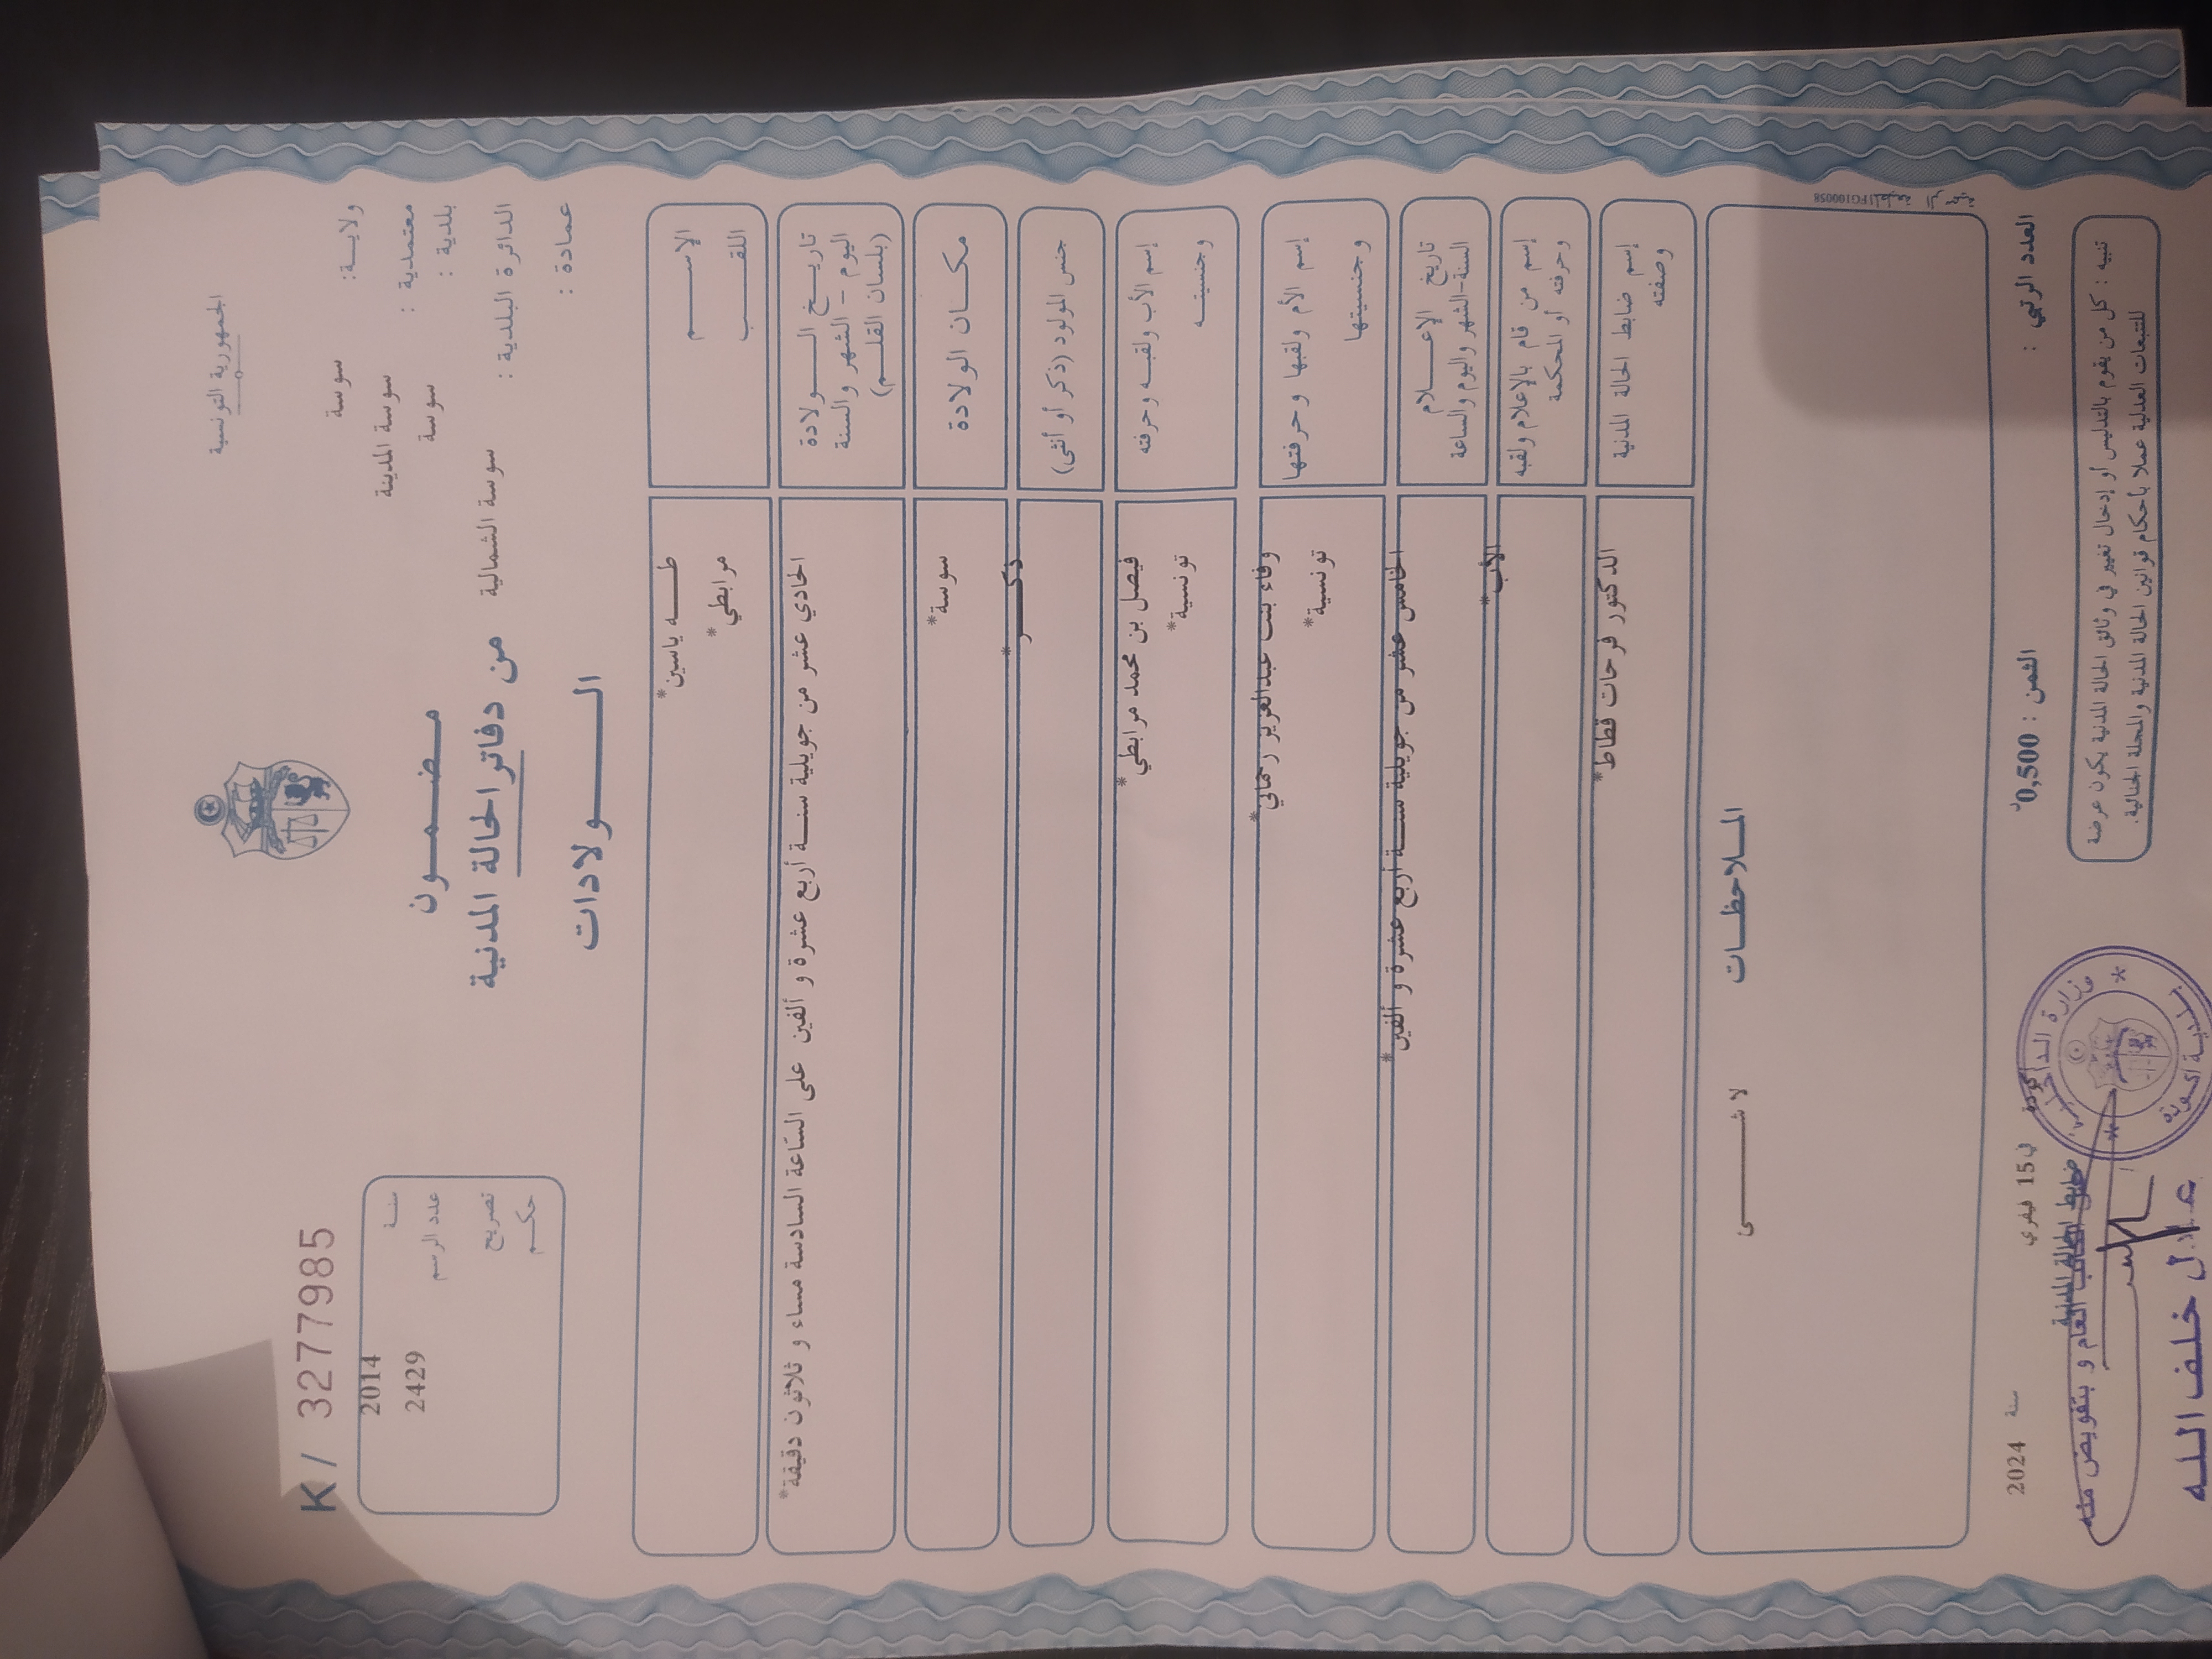 الجمهورية التونسية
K / 3277985
ولايـــة : سوسة
معتمدية : سوسة المدينة
بلدية : سوسة
الدائرة البلدية : سوسة الشمالية
عمادة :
سنــة 2014
عدد الرسم 2429
تصريح
حكـــم
مـضـــمـــون
من دفاتر الحالة المدنية
الـــــولادات
الإســـــم طـــه ياسين*
اللقـــب مرابطي*
تاريـــخ الـــــولادة
اليوم – الشهر والسنة
(بلسان القلـــم)
الحادي عشر من جويلية سنــة أربع عشرة و ألفين على الساعة السادسة مساء و ثلاثون دقيقة*
مكـــان الولادة سوسة*
جنس المولود (ذكر أو أنثى) ذكـــر*
إسم الأب ولقبـــه وحرفته فيصل بن محمد مرابطي*
وجنسيتـــه تونسية*
إسم الأم ولقبها وحرفتها وفاء بنت عبدالعزيز رحماني*
وجنسيتها تونسية*
تاريخ الإعـــــلام
السنة-الشهر واليوم والساعة
الخامس عشر من جويلية سنــة أربع عشرة و ألفين*
إسم من قام بالإعلام ولقبه
وحرفته أو المحكمة
الأب*
إسم ضابط الحالة المدنية
وصفته
الدكتور فرحات قطاط*
المـــلاحظـــات
لا شـــــــى
المطبعة الرسمية FG100058
العدد الرتبي :
الثمن : 0,500د
في 15 فيفري سنة 2024
تنبيه : كل من يقوم بالتدليس أو إدخال تغيير في وثائق الحالة المدنية يكون عرضة
للتتبعات العدلية عملا بأحكام قوانين الحالة المدنية والمجلة الجنائية.
أكودة
وزارة الداخلية
بلدية أكودة
ضابط الحالة المدنية
الكاتب العام و بتفويض منه
عادل خلف الله